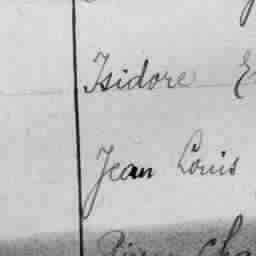 Isidore
Jean Louis